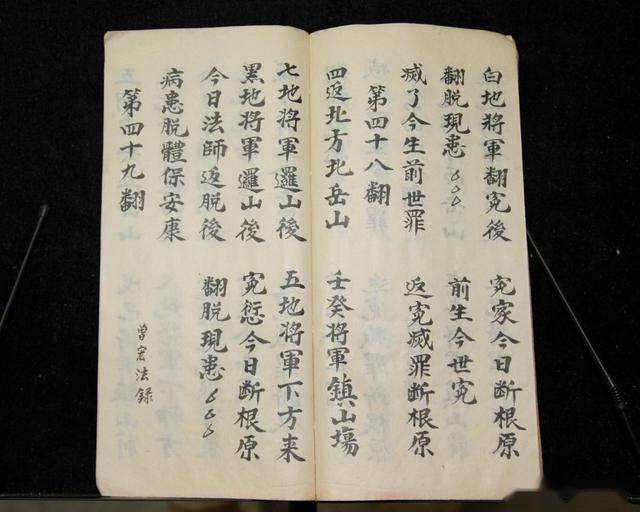 白地將軍翻寃後　寃家今日断根原
翻脱現患〻〻〻　前生今世寃
滅了今生前世罪　返寃滅罪断根原
第四十八翻
四返北方北岳山　壬癸將軍鎮山塲
七地將軍邏山後　五地將軍下方来
黑地將軍邏山後　寃愆今日断根原
今日法師返脱後　翻脱現患〻〻〻
病患脱體保安康
第四十九翻
曾宏法録